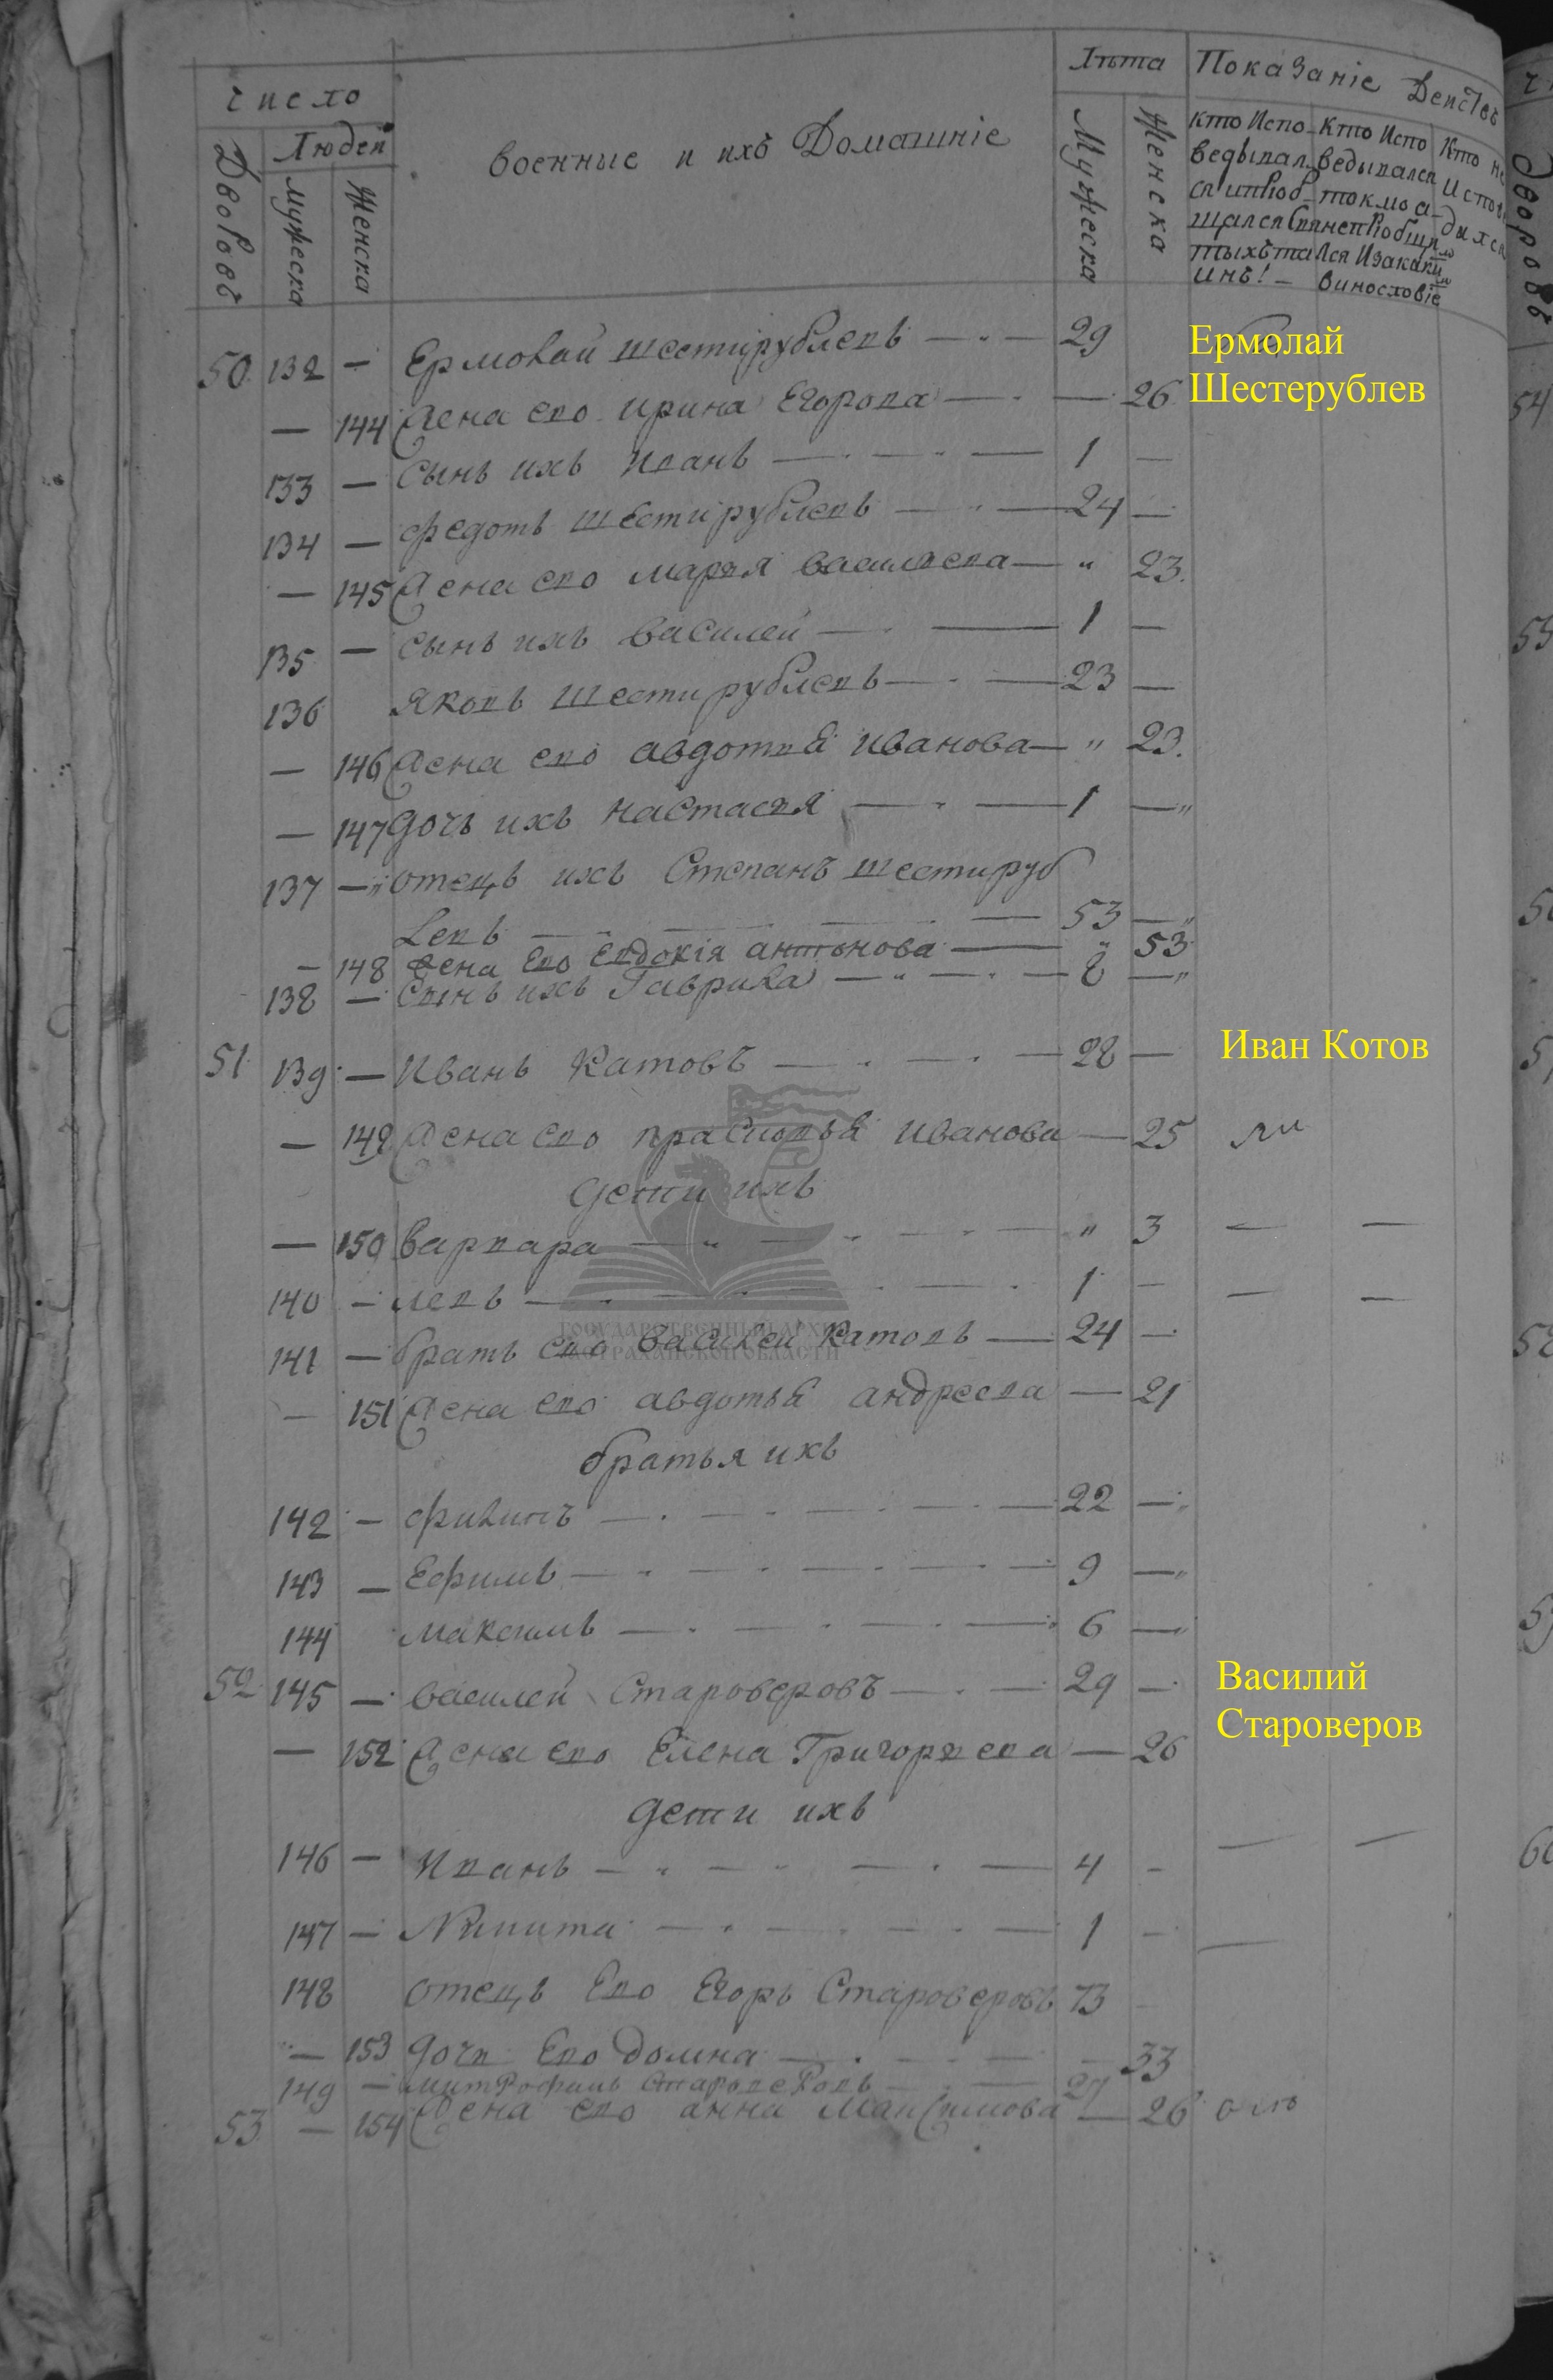 число
Людей
Дворовъ
мужеска
Женска
военные и ихъ Домашніе
Лѣта
Мужеска
Женска
Показаніе Действъ
кто Испо- Кто Испо Кто не
ведывал- ведывался Испове
ся и приоб- токмо а- дался
щался Свя непріобщал
тыхъ та лся И закаки
инъ! винословіе
50 132 — Ермолай шестирублевъ — 29
Ермолай
Шестерублев
— 144 Жена ево Ирина Егорова — 26
133 — Сынъ ихъ Иванъ — 1 —
134 — Федотъ шестирублевъ — 24 —
— 145 Жена ево марья васильева — " 23.
135 — сынъ ихъ василей — 1 —
136 Яковъ шестирублевъ — 23 —
— 146 Жена ево авдотья иванова — " 23.
— 147 дочь ихъ настасья — 1 — "
137 — отецъ ихъ Степанъ шестируб
левъ — 53 —
— 148 жена Ево Евдокія антонова — " 53
138 — Сынъ ихъ Гаврила — 8 — "
51 139 — иванъ Катовъ — 28 —
Иван Котов
— 149 Жена ево прасковья иванова — 25
дети ихъ
— 150 варвара — " 3 — —
140 — левъ — 1 — — —
141 — братъ ево василей Катовъ — 24 —
— 151 Жена ево авдотья андреева — 21
братья ихъ
142 — филипъ — 22 —
143 — Ефимъ — 9 —
144 максимъ — 6 —
52 145 — василей Староверовъ — 29 —
Василий
Староверов
— 152 Жена ево Елена Григорьева — 26
дети ихъ
146 — Иванъ — 4 — — —
147 — Никита — 1 — —
148 отецъ Ево Егоръ Староверовъ 73
— 153 дочь Ево домна — 33
149 — митрофанъ Староверовъ — 27
53 — 154 Жена ево анна Максимова — 26
ГОСУДАРСТВЕННЫЙ АРХИВ
АСТРАХАНСКОЙ ОБЛАСТИ
Дворовъ
54